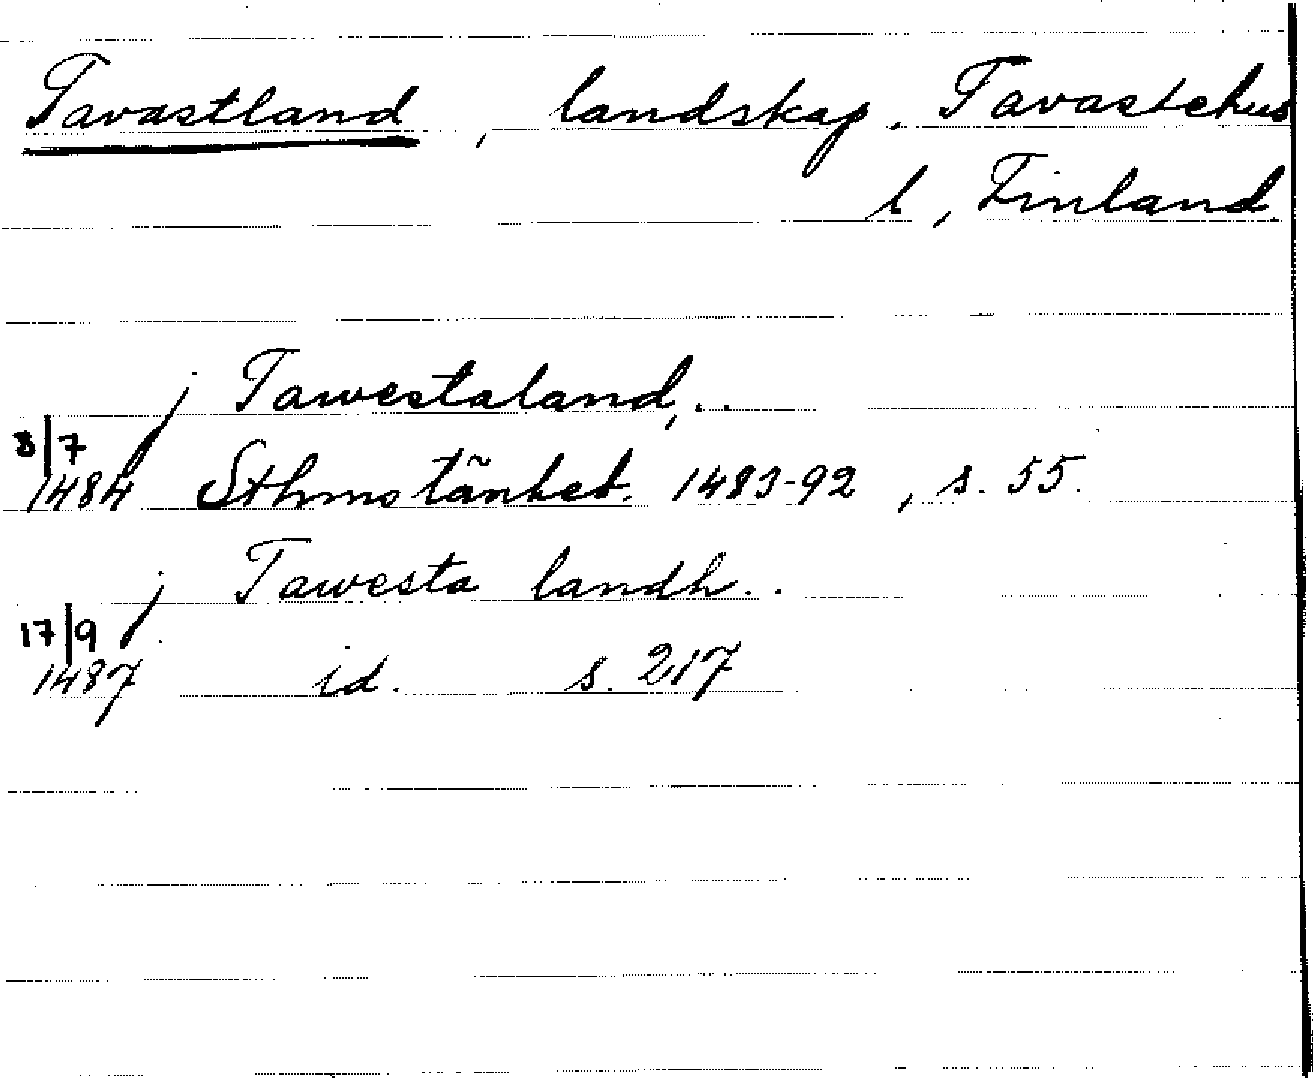 Tavastland, landskap. Tavastehus
l, Finland.
j Tawestaland,..
8/7
1484 Sthms tänkeb. 1483-92, s. 55.
j Tawesta landh..
17/9
1487 id. s. 217